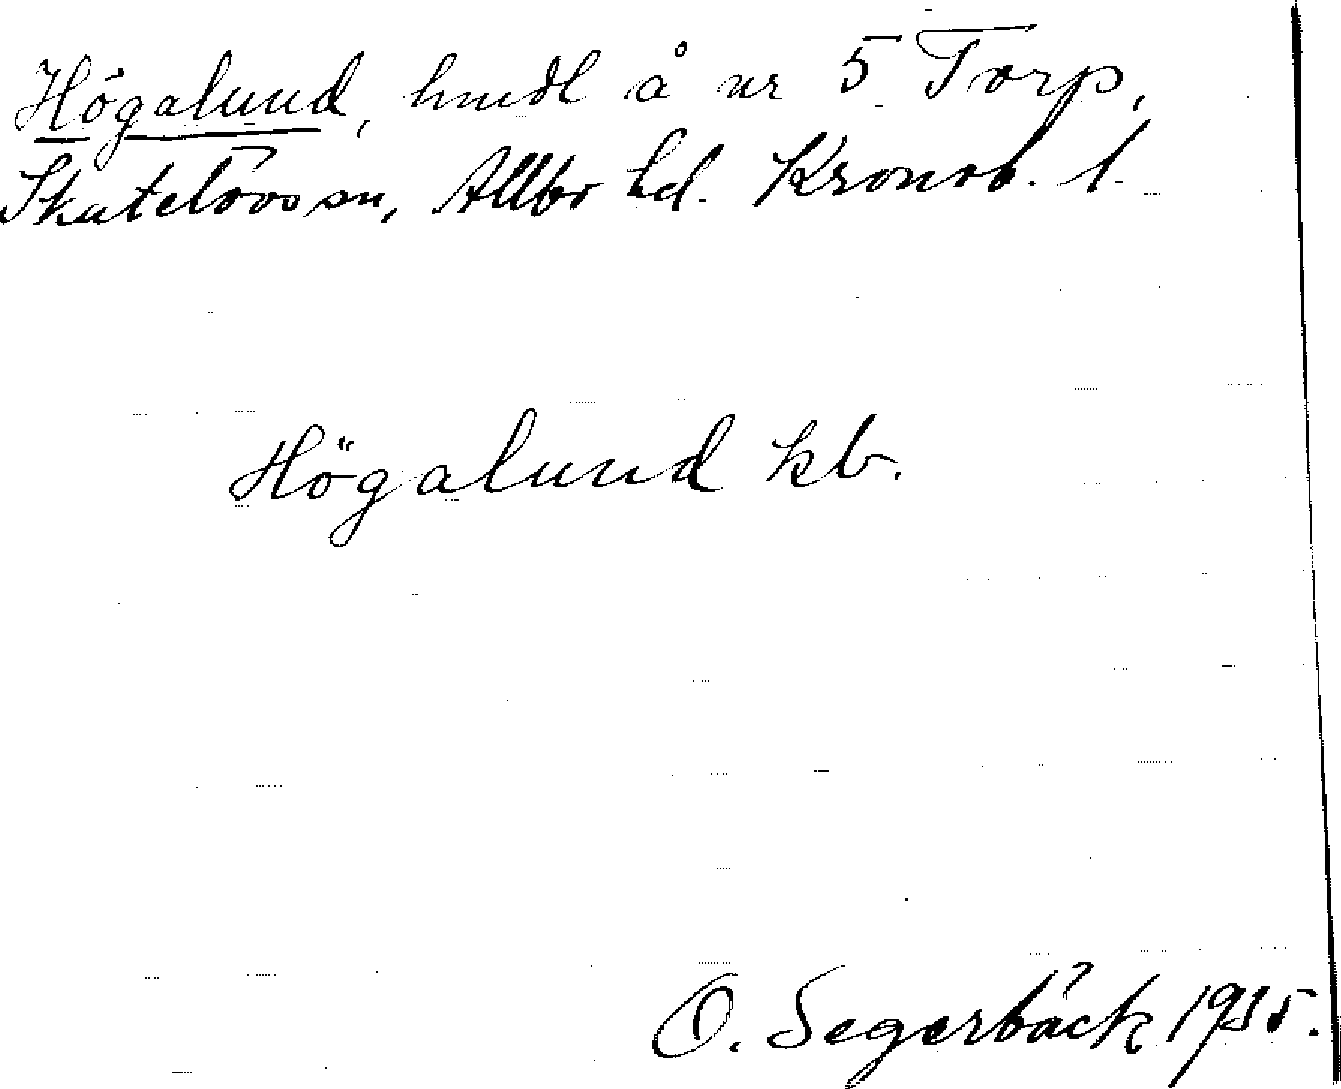 Högalund, hmdl å nr 5 Torp,
Skatelövs sn, Allbo hd. Kronob. l.
Högalund kb.
O. Segerbäck 1935.